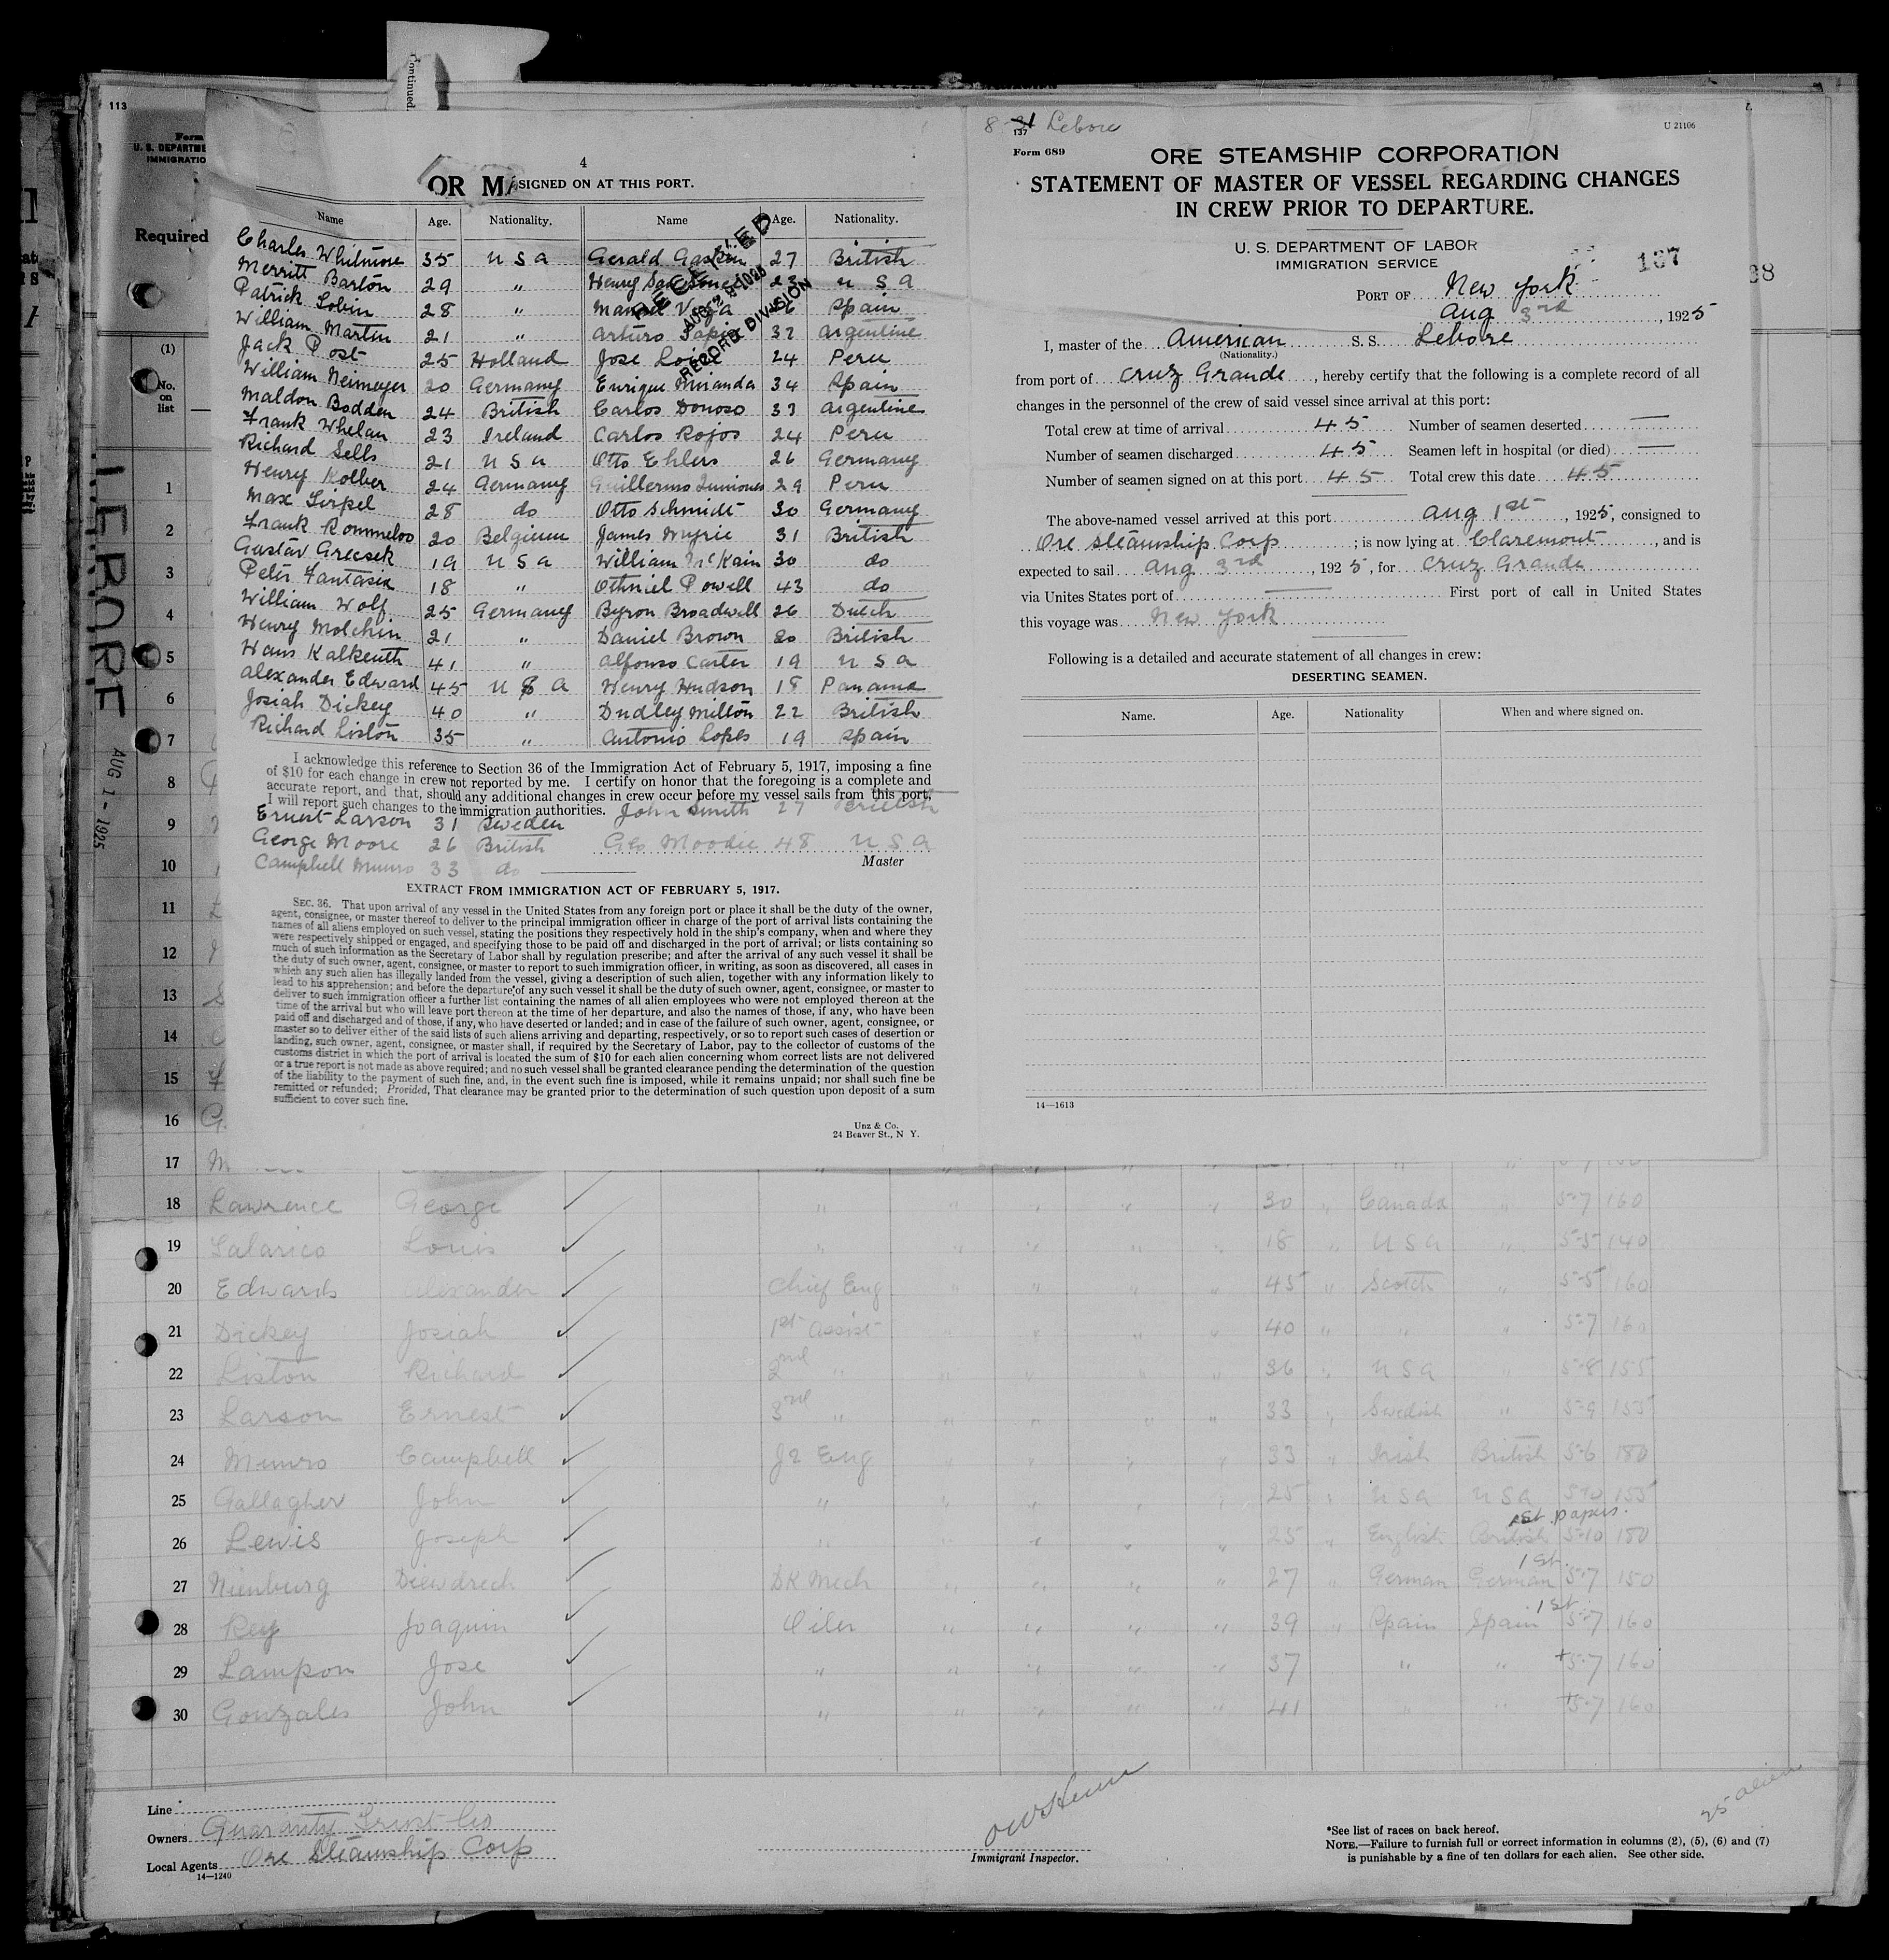 Continued
113
Form
U. S. DEPARTME
IMMIGRATIO
Required
(1)
No.
on
list
LEBORE
AUG 1 - 1925
4
OR MA
SIGNED ON AT THIS PORT.
Name Age. Nationality. Name Age. Nationality.
Charles Whitmore 35 U S A Gerald Gaskin 27 British
Merritt Barton 29 " Henry 23 U S A
Patrick Tobin 28 " Manuel Vega 26 Spain
William Martin 21 " Arturo Tapia 32 Argentine
Jack Post 25 Holland Jose 24 Peru
William Neimeyer 20 Germany Enrique Miranda 34 Spain
Maldon Bodden 24 British Carlos Donoso 33 Argentine
Frank Whelan 23 Ireland Carlos Rojos 24 Peru
Richard Sells 21 U S A Otto Ehlers 26 Germany
Henry Kolber 24 Germany Guillermo 29 Peru
Max 28 do Otto Schmidt 30 Germany
Frank Rommeloo 20 Belgium James Myrie 31 British
Gustav Grecsek 19 U S A William McKain 30 do
Peter Fantasia 18 " Othniel Powell 43 do
William Wolf 25 Germany Byron Broadwell 26 Dutch
Henry Molchin 21 " Daniel Brown 20 British
Hans Kalkenth 41 " Alfonso Carter 19 U S A
Alexander Edward 45 U S A Henry Hudson 18 Panama
Josiah Dickey 40 " Dudley Milton 22 British
Richard Liston 35 " Antonio Lopes 19 Spain
RECEIVED
RECORD DIVISION
I acknowledge this reference to Section 36 of the Immigration Act of February 5, 1917, imposing a fine
of $10 for each change in crew not reported by me. I certify on honor that the foregoing is a complete and
accurate report, and that, should any additional changes in crew occur before my vessel sails from this port,
I will report such changes to the immigration authorities. John Smith 27 British
Ernest Larson 31 Sweden
George Moore 26 British Geo Moodie 48 U S A
Campbell Munro 33 do Master
EXTRACT FROM IMMIGRATION ACT OF FEBRUARY 5, 1917.
SEC. 36. That upon arrival of any vessel in the United States from any foreign port or place it shall be the duty of the owner,
agent, consignee, or master thereof to deliver to the principal immigration officer in charge of the port of arrival lists containing the
names of all aliens employed on such vessel, stating the positions they respectively hold in the ship's company, when and where they
were respectively shipped or engaged, and specifying those to be paid off and discharged in the port of arrival; or lists containing so
much of such information as the Secretary of Labor shall by regulation prescribe; and after the arrival of any such vessel it shall be
the duty of such owner, agent, consignee, or master to report to such immigration officer, in writing, as soon as discovered, all cases in
which any such alien has illegally landed from the vessel, giving a description of such alien, together with any information likely to
lead to his apprehension; and before the departure of any such vessel it shall be the duty of such owner, agent, consignee, or master to
deliver to such immigration officer a further list containing the names of all alien employees who were not employed thereon at the
time of the arrival but who will leave port thereon at the time of her departure, and also the names of those, if any, who have been
paid off and discharged and of those, if any, who have deserted or landed; and in case of the failure of such owner, agent, consignee, or
master so to deliver either of the said lists of such aliens arriving and departing, respectively, or so to report such cases of desertion or
landing, such owner, agent, consignee, or master shall, if required by the Secretary of Labor, pay to the collector of customs of the
customs district in which the port of arrival is located the sum of $10 for each alien concerning whom correct lists are not delivered
or a true report is not made as above required; and no such vessel shall be granted clearance pending the determination of the question
of the liability to the payment of such fine, and, in the event such fine is imposed, while it remains unpaid; nor shall such fine be
remitted or refunded; Provided, That clearance may be granted prior to the determination of such question upon deposit of a sum
sufficient to cover such fine.
Unz & Co.
24 Beaver St., N Y.
8-31 Lebore
137
Form 689
U 21106
ORE STEAMSHIP CORPORATION
STATEMENT OF MASTER OF VESSEL REGARDING CHANGES
IN CREW PRIOR TO DEPARTURE.
U. S. DEPARTMENT OF LABOR
IMMIGRATION SERVICE
137
38
PORT OF New York
Aug 3rd, 1925
I, master of the American S. S. Lebore
(Nationality.)
from port of Cruz Grande, hereby certify that the following is a complete record of all
changes in the personnel of the crew of said vessel since arrival at this port:
Total crew at time of arrival 45 Number of seamen deserted —
Number of seamen discharged 45 Seamen left in hospital (or died) —
Number of seamen signed on at this port 45 Total crew this date 45
The above-named vessel arrived at this port Aug 1st, 1925, consigned to
Ore Steamship Corp; is now lying at Claremont, and is
expected to sail Aug 3rd, 1925, for Cruz Grande
via Unites States port of — First port of call in United States
this voyage was New York
Following is a detailed and accurate statement of all changes in crew:
DESERTING SEAMEN.
Name. Age. Nationality When and where signed on.
14—1613
1
2
3
4
5
6
7
8
9
10
11
12
13
14
15
16 G
17 M
18 Lawrence George " " " " " 30 " Canada " 5-7 160
19 Salarico Louis " " " " " 18 " U S A " 5-5 140
20 Edwards Alexander Chief Eng " " " " 45 " Scotch " 5-5 160
21 Dickey Josiah 1st Assist " " " " 40 " " " 5-7 160
22 Liston Richard 2nd " " " " " 36 " U S A " 5-8 155
23 Larson Ernest 3rd " " " " " 33 " Swedish " 5-9 155
24 Munro Campbell Jr Eng " " " " 33 " Irish British 5-6 180
25 Gallagher John " " " " " 25 " U S A U S A 5-10 155
1st papers.
26 Lewis Joseph " " " " " 25 " English British 5-10 180
1st
27 Nienburg Diedrech DK Mech " " " " 27 " German German 5-7 150
1st
28 Rey Joaquin Oiler " " " " 39 " Spain Spain 5-7 160
29 Lampon Jose " " " " " 37 " " +5-7 160
30 Gonzales John " " " " " 41 " " +5-7 160
Line
Owners Guaranty Trust Co
Local Agents Ore Steamship Corp
14—1240
Immigrant Inspector.
25 alien
*See list of races on back hereof.
NOTE.—Failure to furnish full or correct information in columns (2), (5), (6) and (7)
is punishable by a fine of ten dollars for each alien. See other side.